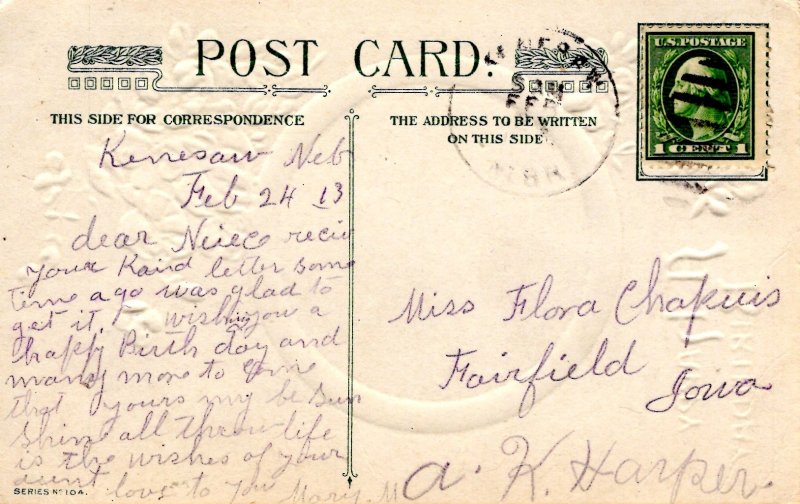 POST CARD.
THIS SIDE FOR CORRESPONDENCE
THE ADDRESS TO BE WRITTEN
ON THIS SIDE
U.S. POSTAGE
1 CENT 1
Kenesaw Neb
Feb 24 13
dear Neiece reciv
your Kaind letter some
time ago was glad to
get it. wishing you a
happy Birth day and
many more to Come
that yours my be Sun
Shine all threw life
is the wishes of your
aunt love to you Mary M
Miss Flora Chapuis
Fairfield
Iowa
a. K. Harper
SERIES No 104.